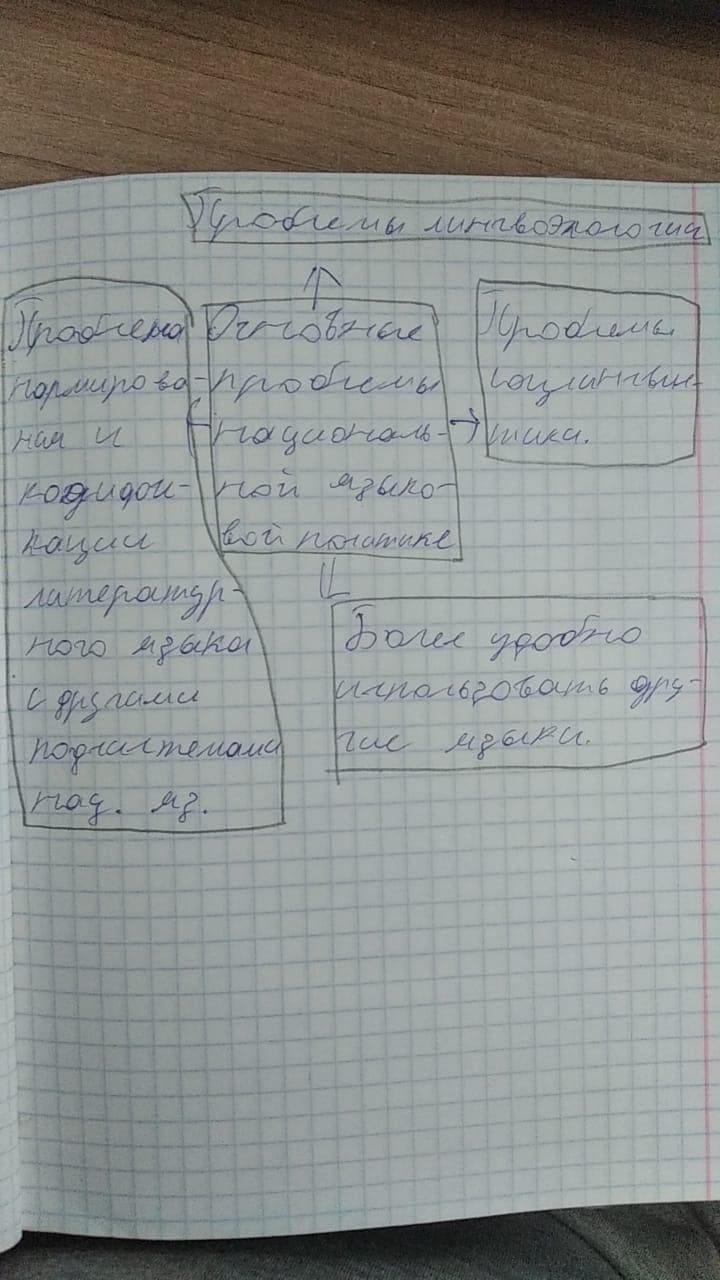 Проблемы лингвоэкологии
Проблема
нормирова-
ная и
кодифи-
кации
литератур-
ного языка
с другими
подсистемами
нац. яз.
Основные
проблемы
националь-
ной языко-
вой политике
Проблемы
соцлингвис-
тика.
Более удобно
использовать дру-
гие языки.